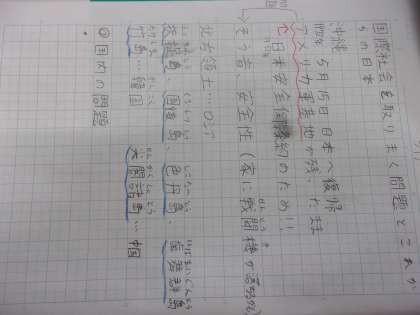 国際社会を取りまく問題とこれか
らの日本
沖縄
5月15日 日本へ復帰
アメリカ軍基地が残った
日米安全 約のため!!
そう音、安全性(家に戦闘機が落ちる)
北方領土…ロシア
択捉島、国後島、色丹島、歯舞群島
竹島…韓国 尖閣諸島…中国
◎国内の問題